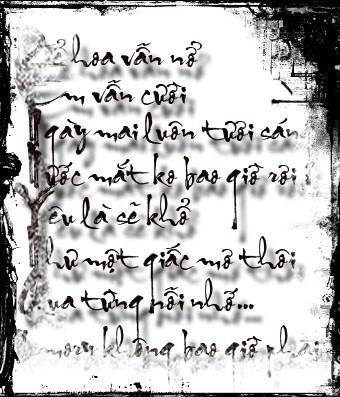 hoa vẫn nở
m vẫn cười
gày mai luôn tươi sán
ước mắt ko bao giờ rơi
êu là sẽ khổ
hư một giấc mơ thôi
ua từng nỗi nhớ...
emory không bao giờ phai